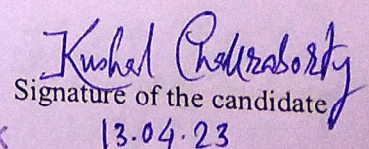 Kushal Chakraborty
Signature of the candidate
13.04.23